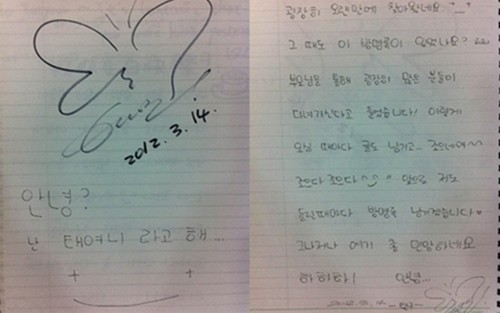 2012. 3. 14.
안녕?
난 태여니 라고 해...
굉장히 오랜만에 찾아왔네요 ^_^
그 때도 이 방명록이 있었나요?
부모님을 통해 굉장히 많은 분들이
다녀가신다고 들었습니다! 이렇게
오실 때마다 글도 남기고... 좋으네여~~
좋으다 좋으다^^ 앞으로 저도
들릴때마다 방명록 남기겠습니다
그나저나 여기 좀 민망하네요
하하하! 안녕...